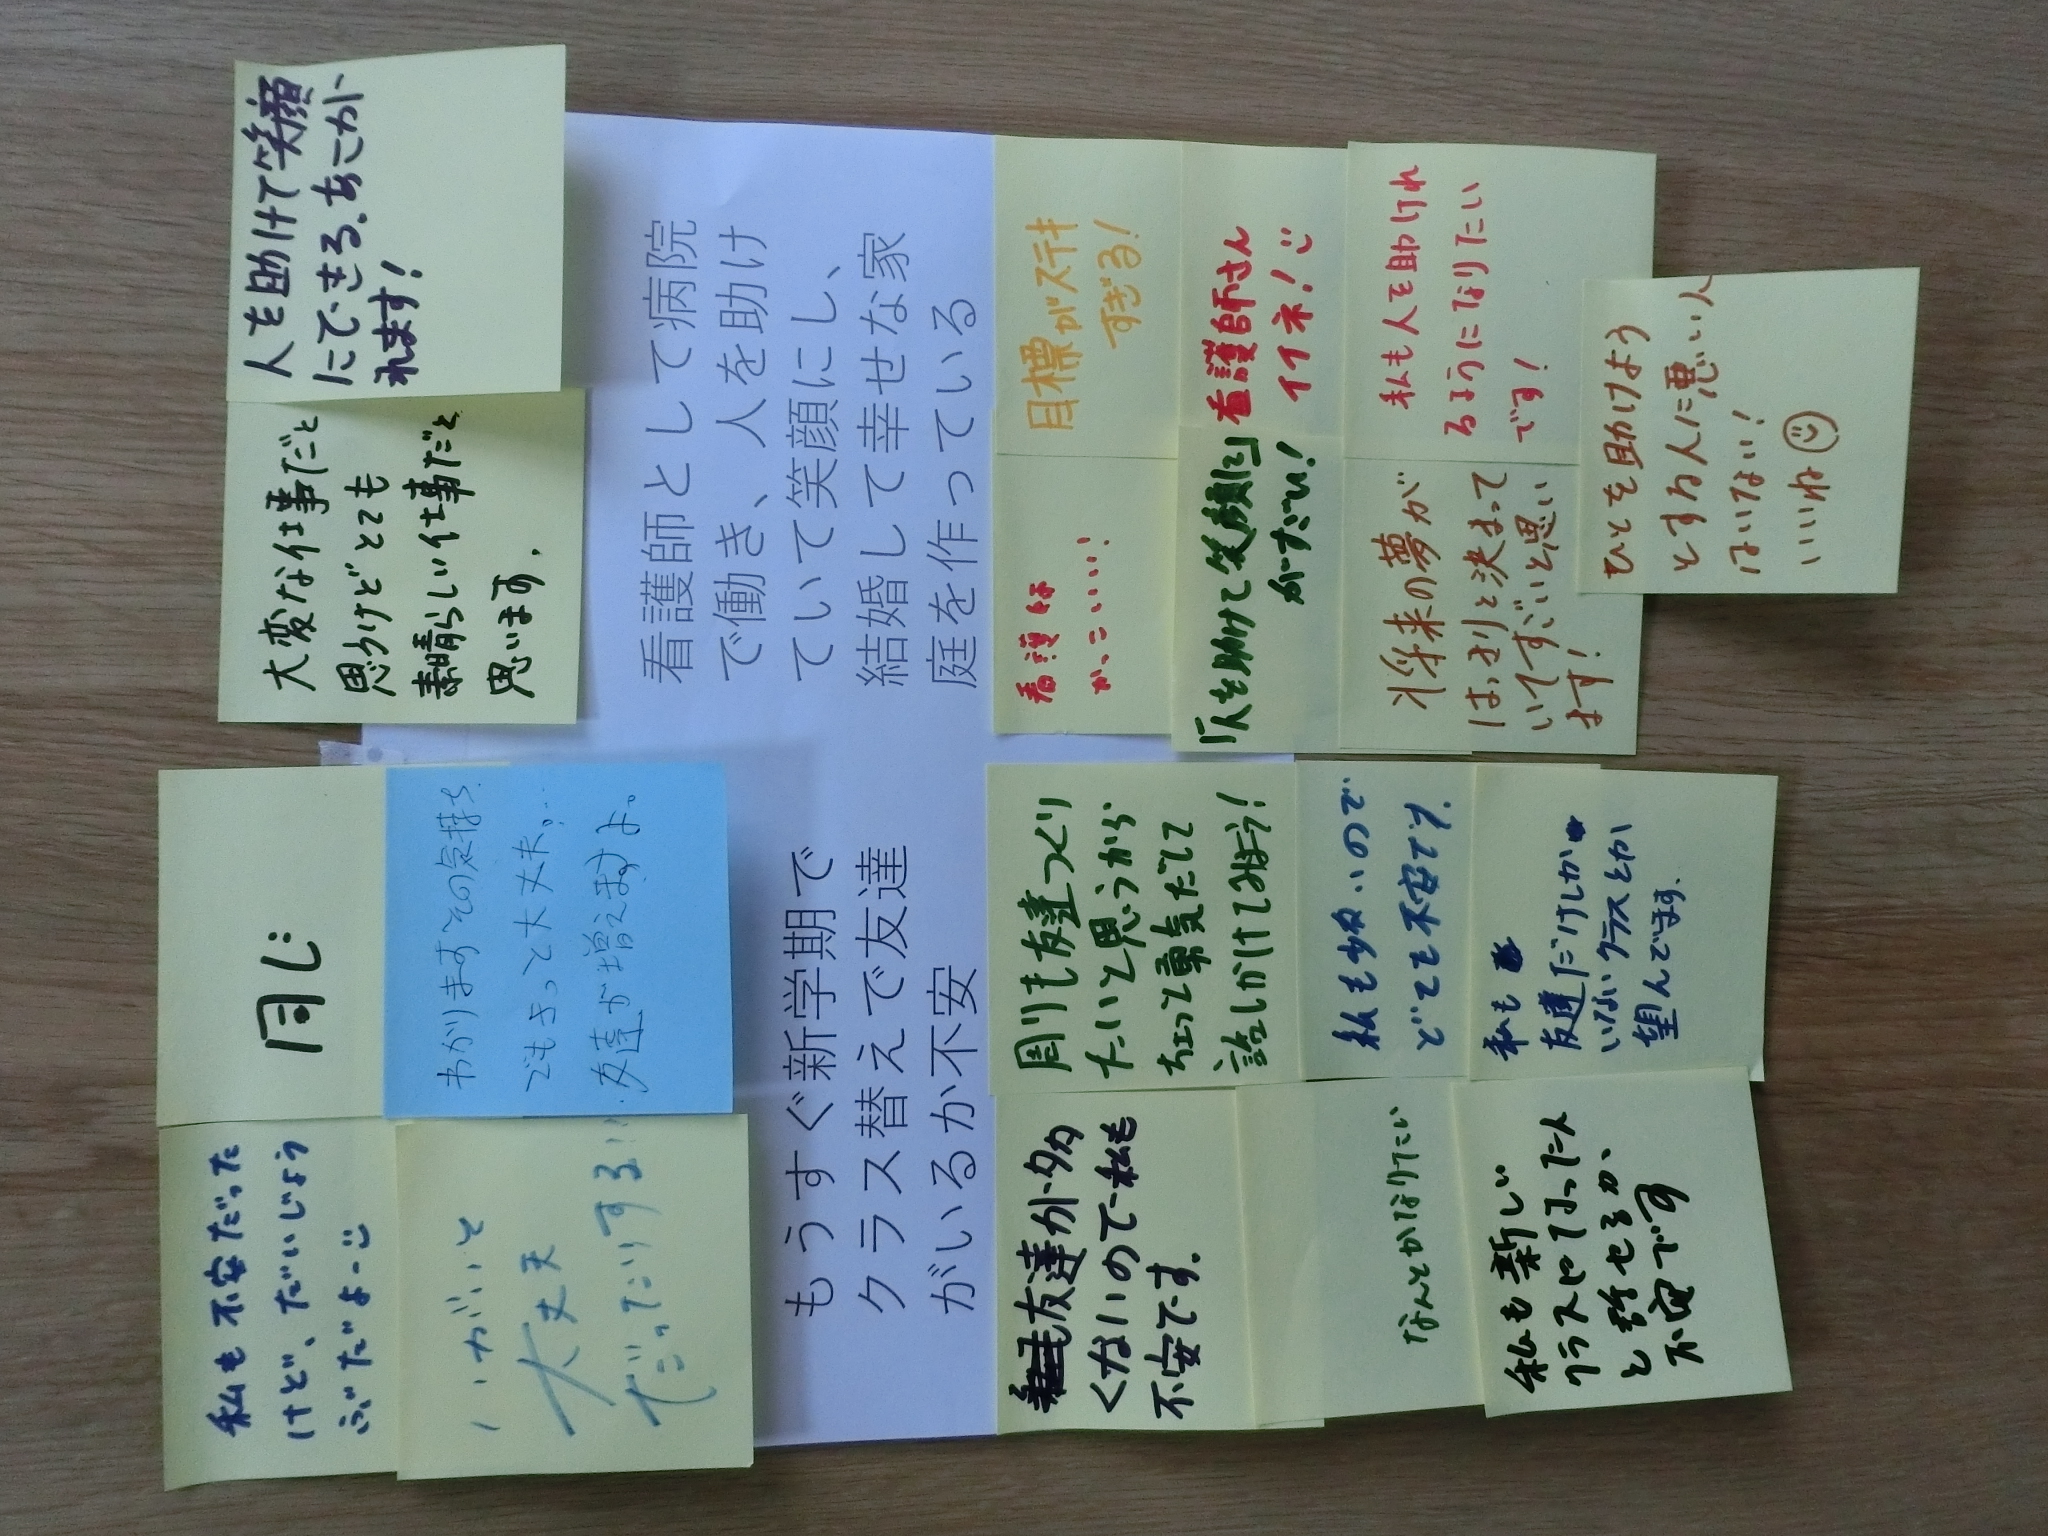 私も不安だった
けど、だいじょう
ぶだよー
同じ
いがいと
大丈夫
だったりする!!
わかりますその気持ち
でもきっと大丈夫。…
友達が増えますよ。
もうすぐ新学期で
クラス替えで友達
がいるか不安
友達が多
くないので私も
不安です。
周りも友達つくり
たいと思うから
ちょっと勇気だして
話しかけてみよう!
なんとかなりたい
私も少ないので
とても不安です。
私も新しい
クラスになった人
と話せるか
不安です
私も
友達だけしか
いないクラスとか
望んでます。
大変な仕事だと
思うけどとても
素晴らしい仕事だと
思います。
人を助けて笑顔
にできる。あこが
れます!
看護師として病院
で働き、人を助け
ていて笑顔にし、
結婚して幸せな家
庭を作っている
看護師
かっこいい!
目標がステキ
すぎる!
「人を助けて笑顔に」
がすごい!
看護師さん
イイネ!
将来の夢が
はっきりと決まって
いてすごいと思い
ます!
私も人を助けれ
るようになりたい
です!
ひとを助けよう
とする人に悪い人
はいない!
いいね